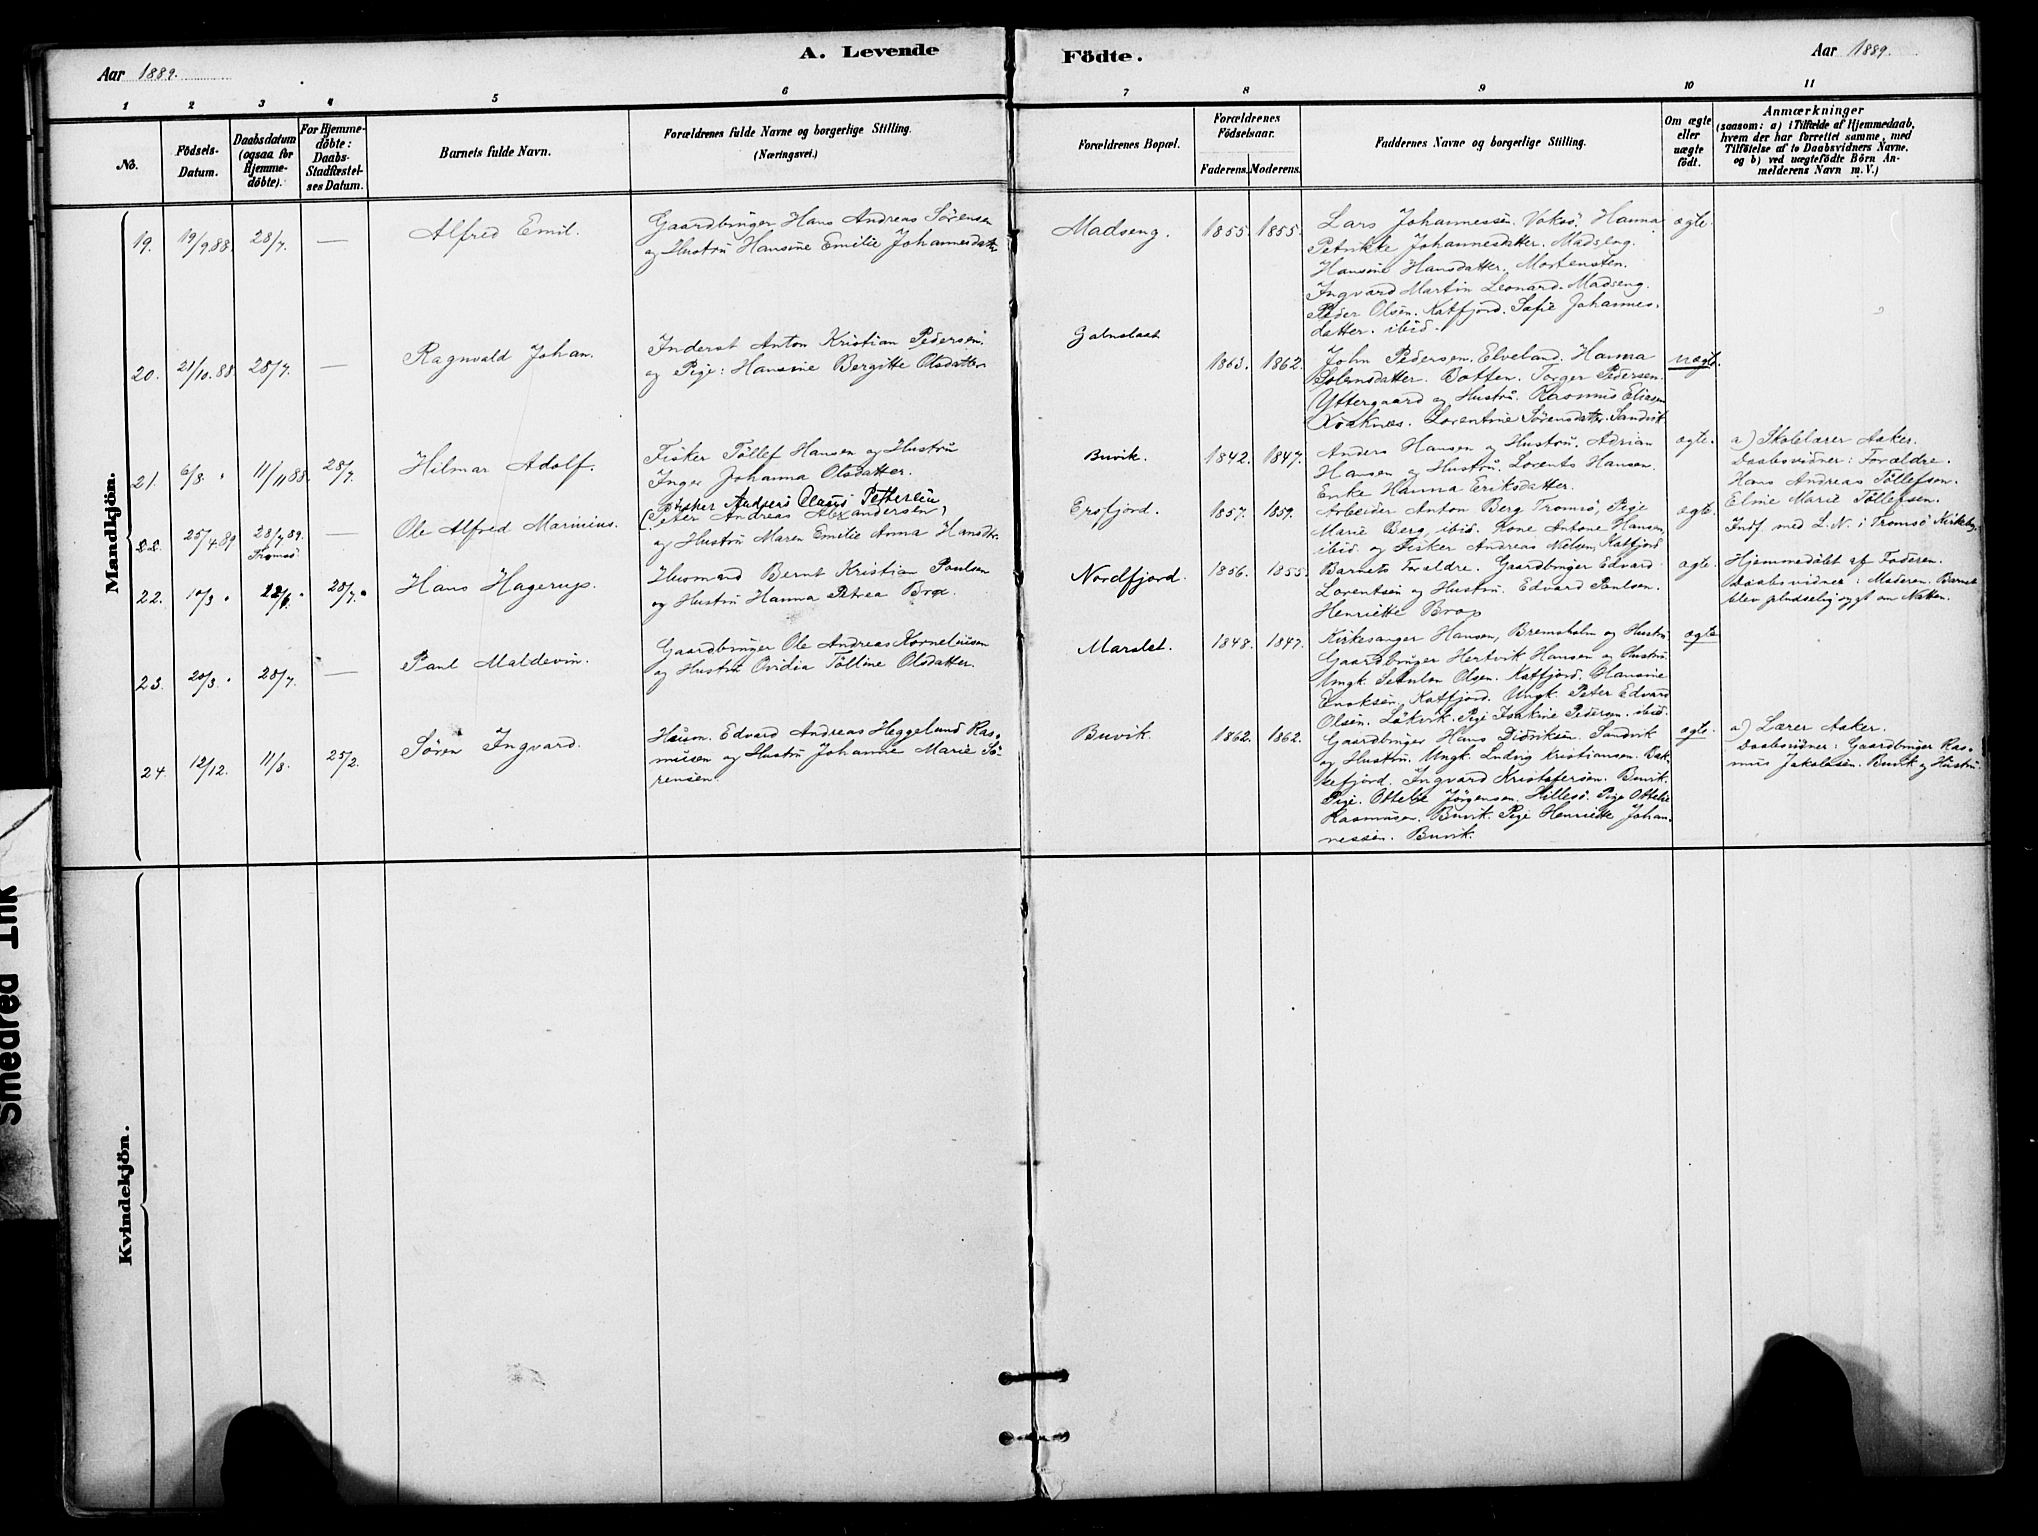 Aar 1889.
A. Levende
Födte.
Aar 1889.
1 2 3 4 5 6 7 8 9 10 11
No.
Födsels-
Datum.
Daabsdatum
(ogsaa for
Hjemme-
döbte).
For Hjemme-
döbte:
Daabs-
Stadfæstel-
ses Datum.
Barnets fulde Navn.
Forældrenes fulde Navne og borgerlige Stilling.
(Næringsvei.)
Forældrenes Bopæl.
Forældrenes
Födselsaar.
Faderens. Moderens.
Faddernes Navne og borgerlige Stilling.
Om ægte
eller
uægte
födt.
Anmærkninger
(saasom: a) i Tilfælde af Hjemmedaab,
hvem der har forrettet samme, med
Tilföielse af to Daabsvidners Navne,
og b) ved uægtefödte Börn An-
melderens Navn m. V.)
Mandkjön.
19. 19/9 88. 28/7. — Alfred Emil.
Gaardbruger Hans Andreas Sørensen
og Hustru Hansine Emilie Johannesdatter
Madseng. 1855. 1855.
Lars Johannessen. Voksö. Hanna
Petrikke Johannesdatter. Madseng.
Hansine Hansdatter. Mortensten.
Ingvard Martin Leonard. Madseng.
Peder Olsen. Katfjord. Sofie Johannes-
datter. ibid.
ægte.
20. 21/10 88. 28/7. — Ragnvald Johan.
Inderst Anton Kristian Pedersen.
og Pige: Hansine Bergitte Olsdatter
1863. 1862.
John Pedersen. Elveland. Hanna
Botten. Torger Pedersen.
Yttergaard og Hustru. Rasmus Eliasen
Lorentine Sørensdatter. Sandvik
uægte.
21. 6/8. " 11/11 88. 28/7. Hilmar Adolf.
Fisker Töllef Hansen og Hustru
Inger Johanna Olsdatter.
Buvik. 1842. 1847.
Anders Hansen og Hustru. Adrian
Hansen og Hustru. Lorents Hansen.
Enke Hanna Eriksdatter.
ægte.
a) Skolelærer Aaker.
Daabsvidner: Forældre.
Hans Andreas Töllefsen.
Eline Marie Töllefsen.
22. 25/4 89 28/7 89. Tromsö — Ole Alfred Marinius.
Fisker Anders Claus Pettersen
(Peter Andreas Alexandersen)
og Hustru Maren Emelie Anna Hansdtr.
Ersfjord. 1857. 1859.
Arbeider Anton Berg Tromsö, Pige
Marie Berg, ibid. Kone Antone Hansen,
ibid. og Fisker Andreas Nielsen, Katfjord
ægte.
Indf. med L. N. i Tromsö Kirkebog.
22. 10/3 " 22/6. " 28/7. " Hans Hagerup.
Husmand Bernt Kristian Paulsen
og Hustru Hanna Petrea Brox.
Nordfjord. 1856. 1855.
Barnets Forældre. Gaardbruger Edvard
Lorentsen og Hustru. Edvard Paulsen.
Henriette Brox
ægte.
Hjemmedöbt af Faderen.
Daabsvidner: Moderen. Barnet
blev pludselig sygt om Natten.
23. 20/3. " 28/7. — Paul Maldevin.
Gaardbruger Ole Andreas Korneliusen
og Hustru Ovidia Tölline Olsdatter.
Marslet. 1848. 1847.
Kirkesanger Hansen, Bremsholm og Hustru
Gaardbruger Hertvik Hansen og Hustru.
Ungk. Olsen. Katfjord. Hansine
Enoksen. Katfjord. Ungk. Peter Edvard
Olsen. Pige Joakine Pedersen. ibid.
ægte
24. 12/12. 11/8. 25/2. Søren Ingvard.
Husm. Edvard Andreas Heggelund Ras-
mussen og Hustru Johanne Marie Sö-
rensen.
Buvik. 1862. 1862.
Gaardbruger Hans Didriksen. Sandvik
og Hustru. Ungk. Ludvig Kristiansen. Bak-
kefjord. Ingvard Kristofersen. Buvik.
Pige. Jørgensen. Hillesö. Pige Ottelie
Rasmusen. Buvik. Pige Henriette Johan-
nessen. Buvik.
ægte.
a) Lærer Aaker.
Daabsvidner: Gaardbruger Ras-
mus Jakobsen. Buvik og Hustru.
Kvindekjön.
Smedred Ink